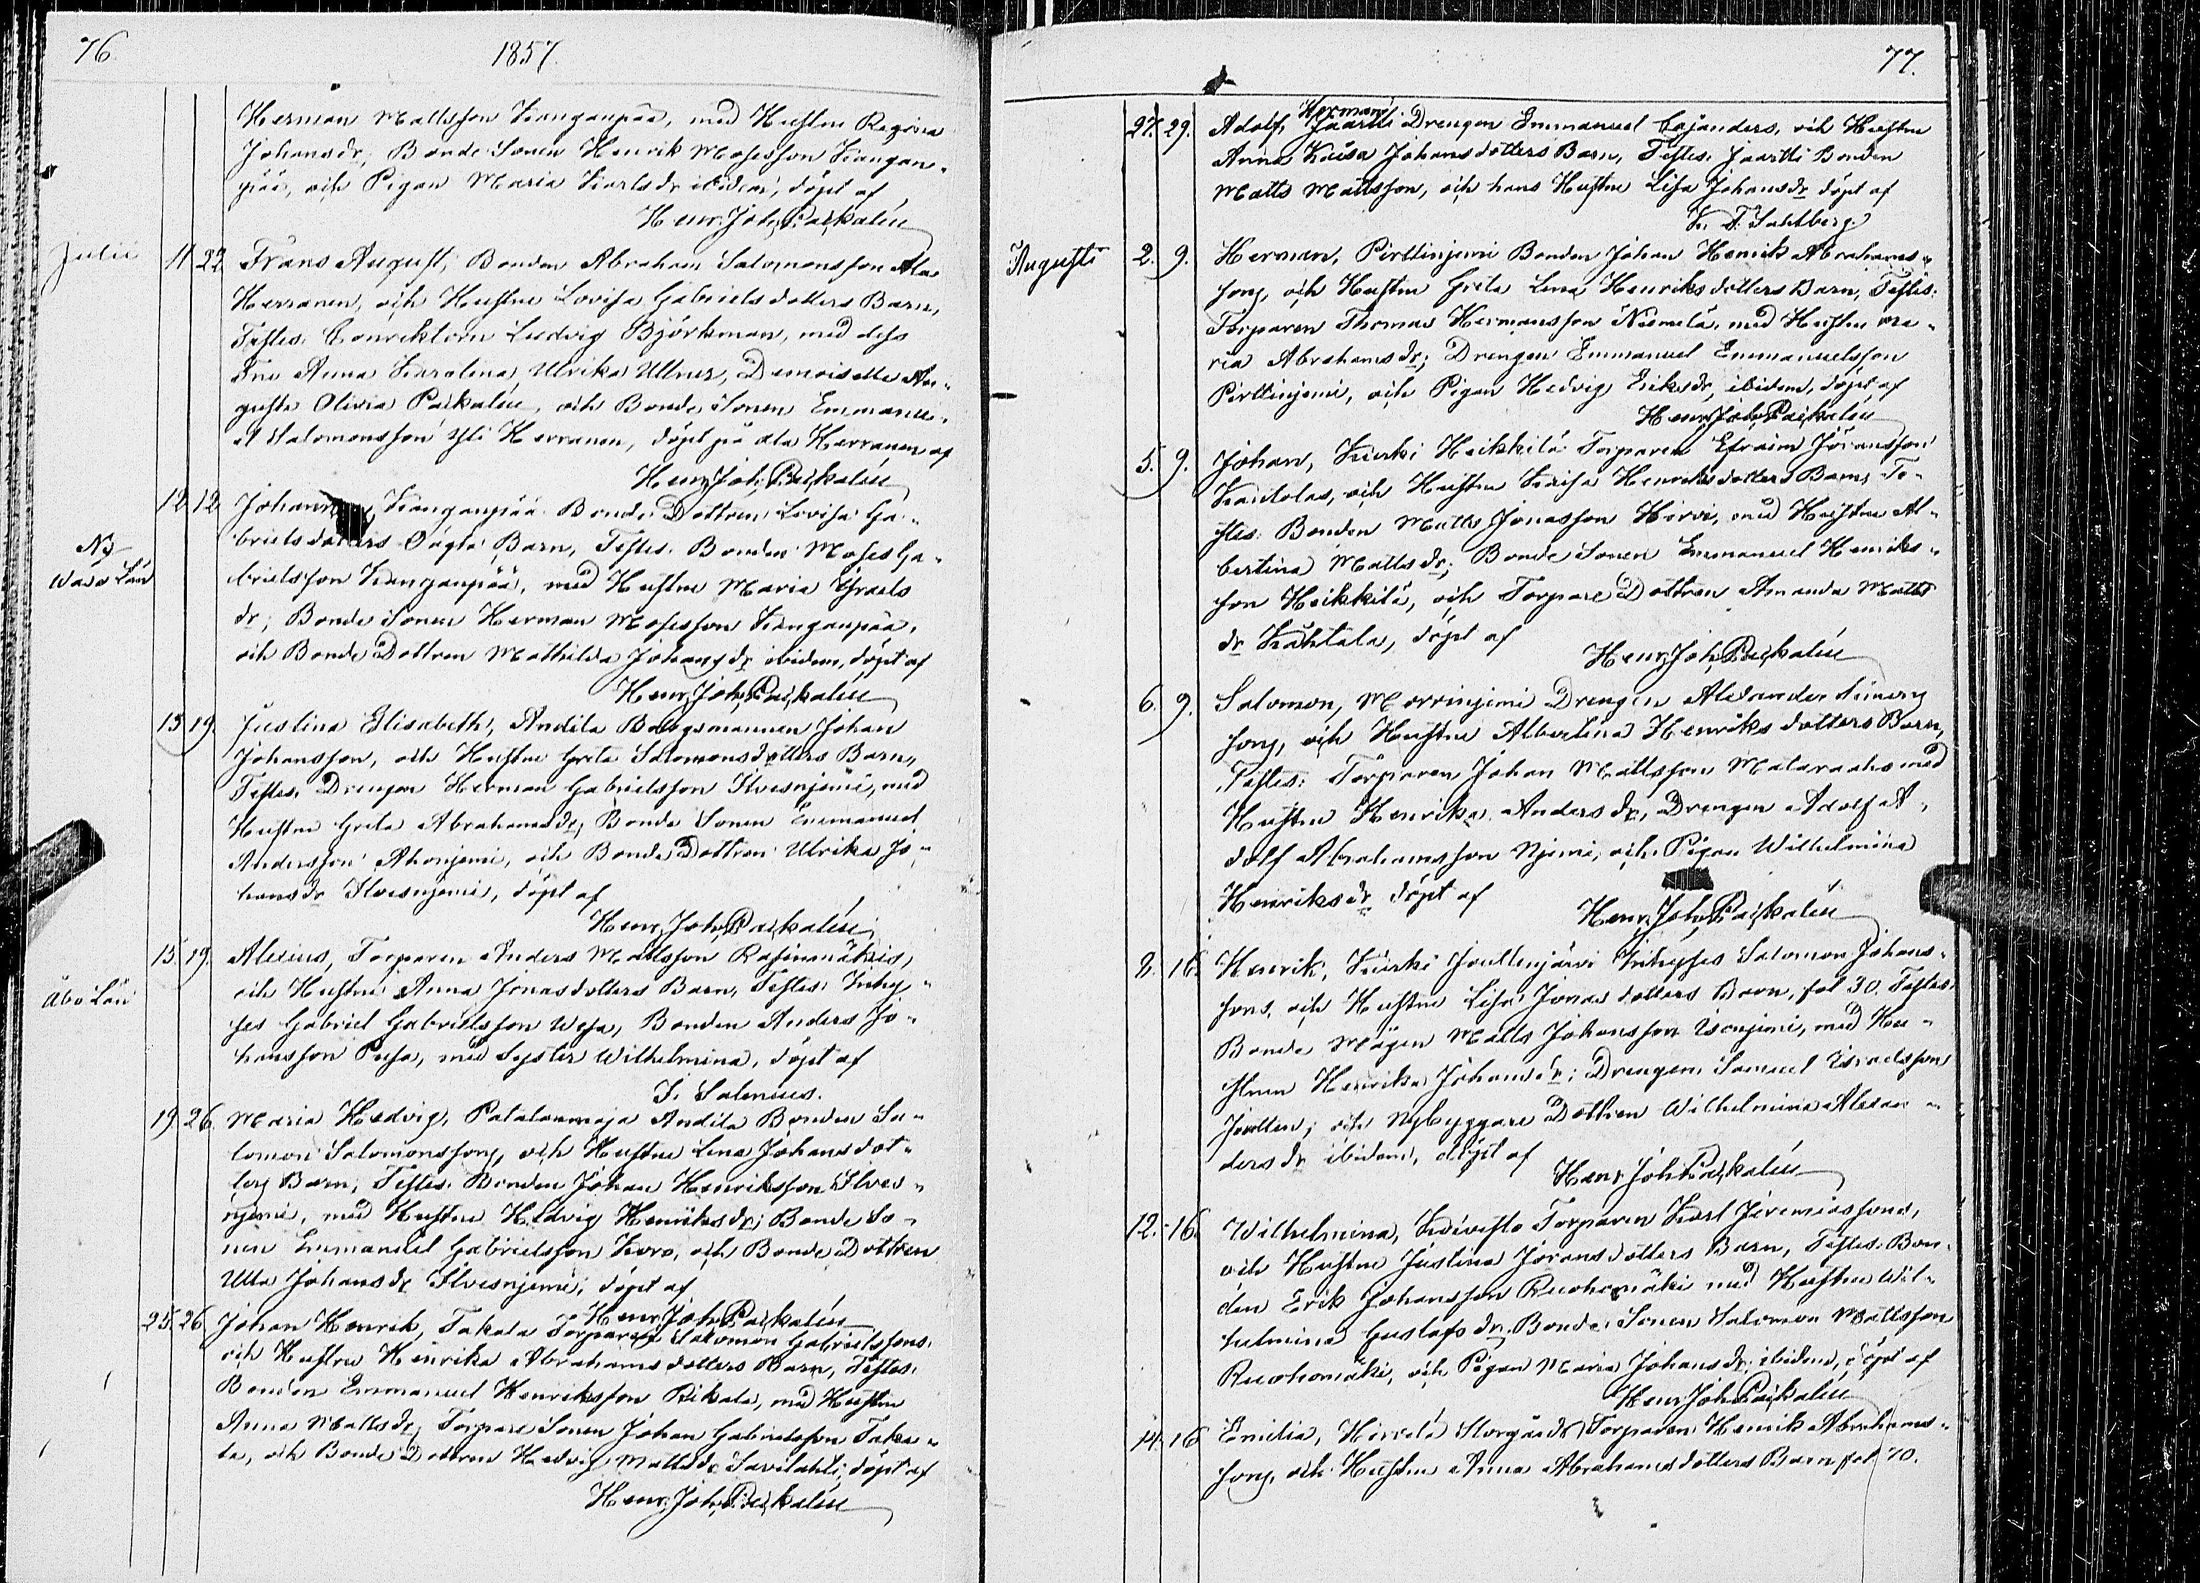 76.
1857.
Herman Mattsson Kangaspää, med Hustru Regina
Johansdr; Bonde Sonen Henrik Mosesson Kangas-
pää, och Pigan Maria Karlsdr ibidem, döpt af
Henr: Joh: Paskalin
Julii 11 22 Frans August, Bonden Abraham Salomonsson Ala
Herranen, och Hustru Lovisa Gabrielsdotters Barn,
Testes: Conrektorn Ludvig Björkman, med dess
Fru Anna Karolina Ulrika Ullner, Demoiselle Au-
gusta Olivia Paskalin, och Bonde Sonen Emmanu-
el Salomonsson Yli Herranen, döpt på Ala Herranen af
Henr: Joh: Paskalin
12 12 Johan, Kangaspää Bonde Dottren Lovisa Ga-
brielsdotters Oägta Barn, Testes: Bonden Moses Ga-
Ny
brielsson Kangaspää, med Hustru Maria Israels
Wasa Län
dr; Bonde Sonen Herman Mosesson Kangaspää,
och Bonde Dottren Mathilda Johansdr ibidem, döpt af
Henr: Joh: Paskalin
13 19. Justina Elisabeth, Andila Johan
Johansson, och Hustru Greta Salomonsdotters Barn,
Testes: Drengen Herman Gabrielsson Ilvesnjemi, med
Hustru Greta Abrahamsdr, Bonde Sonen Emmanuel
Andersson Ahonjemi, och Bonde Dottren Ulrika Jo-
hansdr Ilvesnjemi, döpt af
Henr: Joh: Paskalin
15 19. Alexius, Torparen Anders Mattsson Rasinmäkis,
och Hustru Anna Jonasdotters Barn, Testes: Inhy-
Åbo Län
ses Gabriel Gabrielsson Wesa, Bonden Anders Jo-
hansson Pesa, med Syster Wilhelmina, döpt af
I. Salenius.
19 26 Maria Hedvig, Patalanmaja Andila Bonden Sa-
lomon Salomonssons, och Hustru Lena Johansdot-
ters Barn, Testes: Bonden Johan Henriksson Ilves-
njemi, med Hustru Hedvig Henriksdr; Bonde So-
nen Emmanuel Gabrielsson, och Bonde Dottren
Ulla Johansdr Ilvesnjemi, döpt af
Henr: Joh: Paskalin
25. 26. Johan Henrik, Takala Torparen Salomon Gabrielssons
och Hustru Henrika Abrahamsdotters Barn, Testes:
Bonden Emmanuel Henriksson Rikala, med Hustru
Anna Mattsdr, Torpare Sonen Johan Gabrielsson Taka-
la, och Bonde Dottren Hedvig Mattsdr Savilahti, döpt af
Henr: Joh: Paskalin
77.
Herman
27. 29. Adolf, Jaartti Drengen Emmanuel Cajanders, och Hustru
Anna Kaisa Johansdotters Barn, Testes: Jaartti Bonden
Matts Mattsson, och hans Hustru Lisa Johansdr döpt af
K. F. Sahlberg
Augusti 2. 9. Herman, Perttinjemi Bonden Johan Henrik Abrahams-
sons, och Hustru Greta Lena Henriksdotters Barn, Testes:
Torparen Thomas Hermansson Niemelä, med Hustru Ma-
ria Abrahamsdr; Drengen Emmanuel Emmanuelsson
Perttinjemi, och Pigan Hedvig Eriksdr, ibidem, döpt af
Henr: Joh: Paskalin
5. 9. Johan, Kurki Heikkilä Torparen Efraim Jöransson
Kantolas, och Hustru Kaisa Henriksdotters Barn, Te-
stes: Bonden Matts Jonasson Hirvi, med Hustru Al-
bertina Mattsdr; Bonde Sonen Emmanuel Henriks-
son Heikkilä, och Torpare Dottren Amanda Matts
dr Kahtala, döpt af
Henr: Joh: Paskalin
6. 9. Salomon, Morrinjemi Drengen Alexander
sons, och Hustru Albertina Henriksdotters Barn,
Testes: Torparen Johan Mattsson Mataraho med
Hustru Henrika Andersdr, Drengen Adolf A-
dolf Abrahamsson Njemi, och Pigan Wilhelmina
Henriksdr döpt af
Henr: Joh: Paskalin
8. 16. Henrik, Kurki Inhyses Salomon Johans-
sons, och Hustru Lisa Jonasdotters Barn, fol 30. Testes:
Bonde Mågen Matts Johansson, med Hu-
strun Henrika Johansdr; Drengen Samuel Israelsson
och Nybyggare Dottren Wilhelmina Alexan-
dersdr ibidem, döpt af
Henr: Joh: Paskalin
12. 16. Wilhelmina, Koivisto Torparen Karl Jeremiassons,
och Hustru Justina Jöransdotters Barn, Testes: Bon-
den Erik Johansson Ruohomäki med Hustru Wil-
helmina Gustafsdr, Bonde Sonen Salomon Mattsson
Ruohomäki, och Pigan Maria Johansdr, ibidem, döpt af
Henr: Joh: Paskalin
14. 16 Emilia, Hirvelä Storgårds Torparen Henrik Abrahams-
sons, och Hustru Anna Abrahamsdotters Barn fol 70.